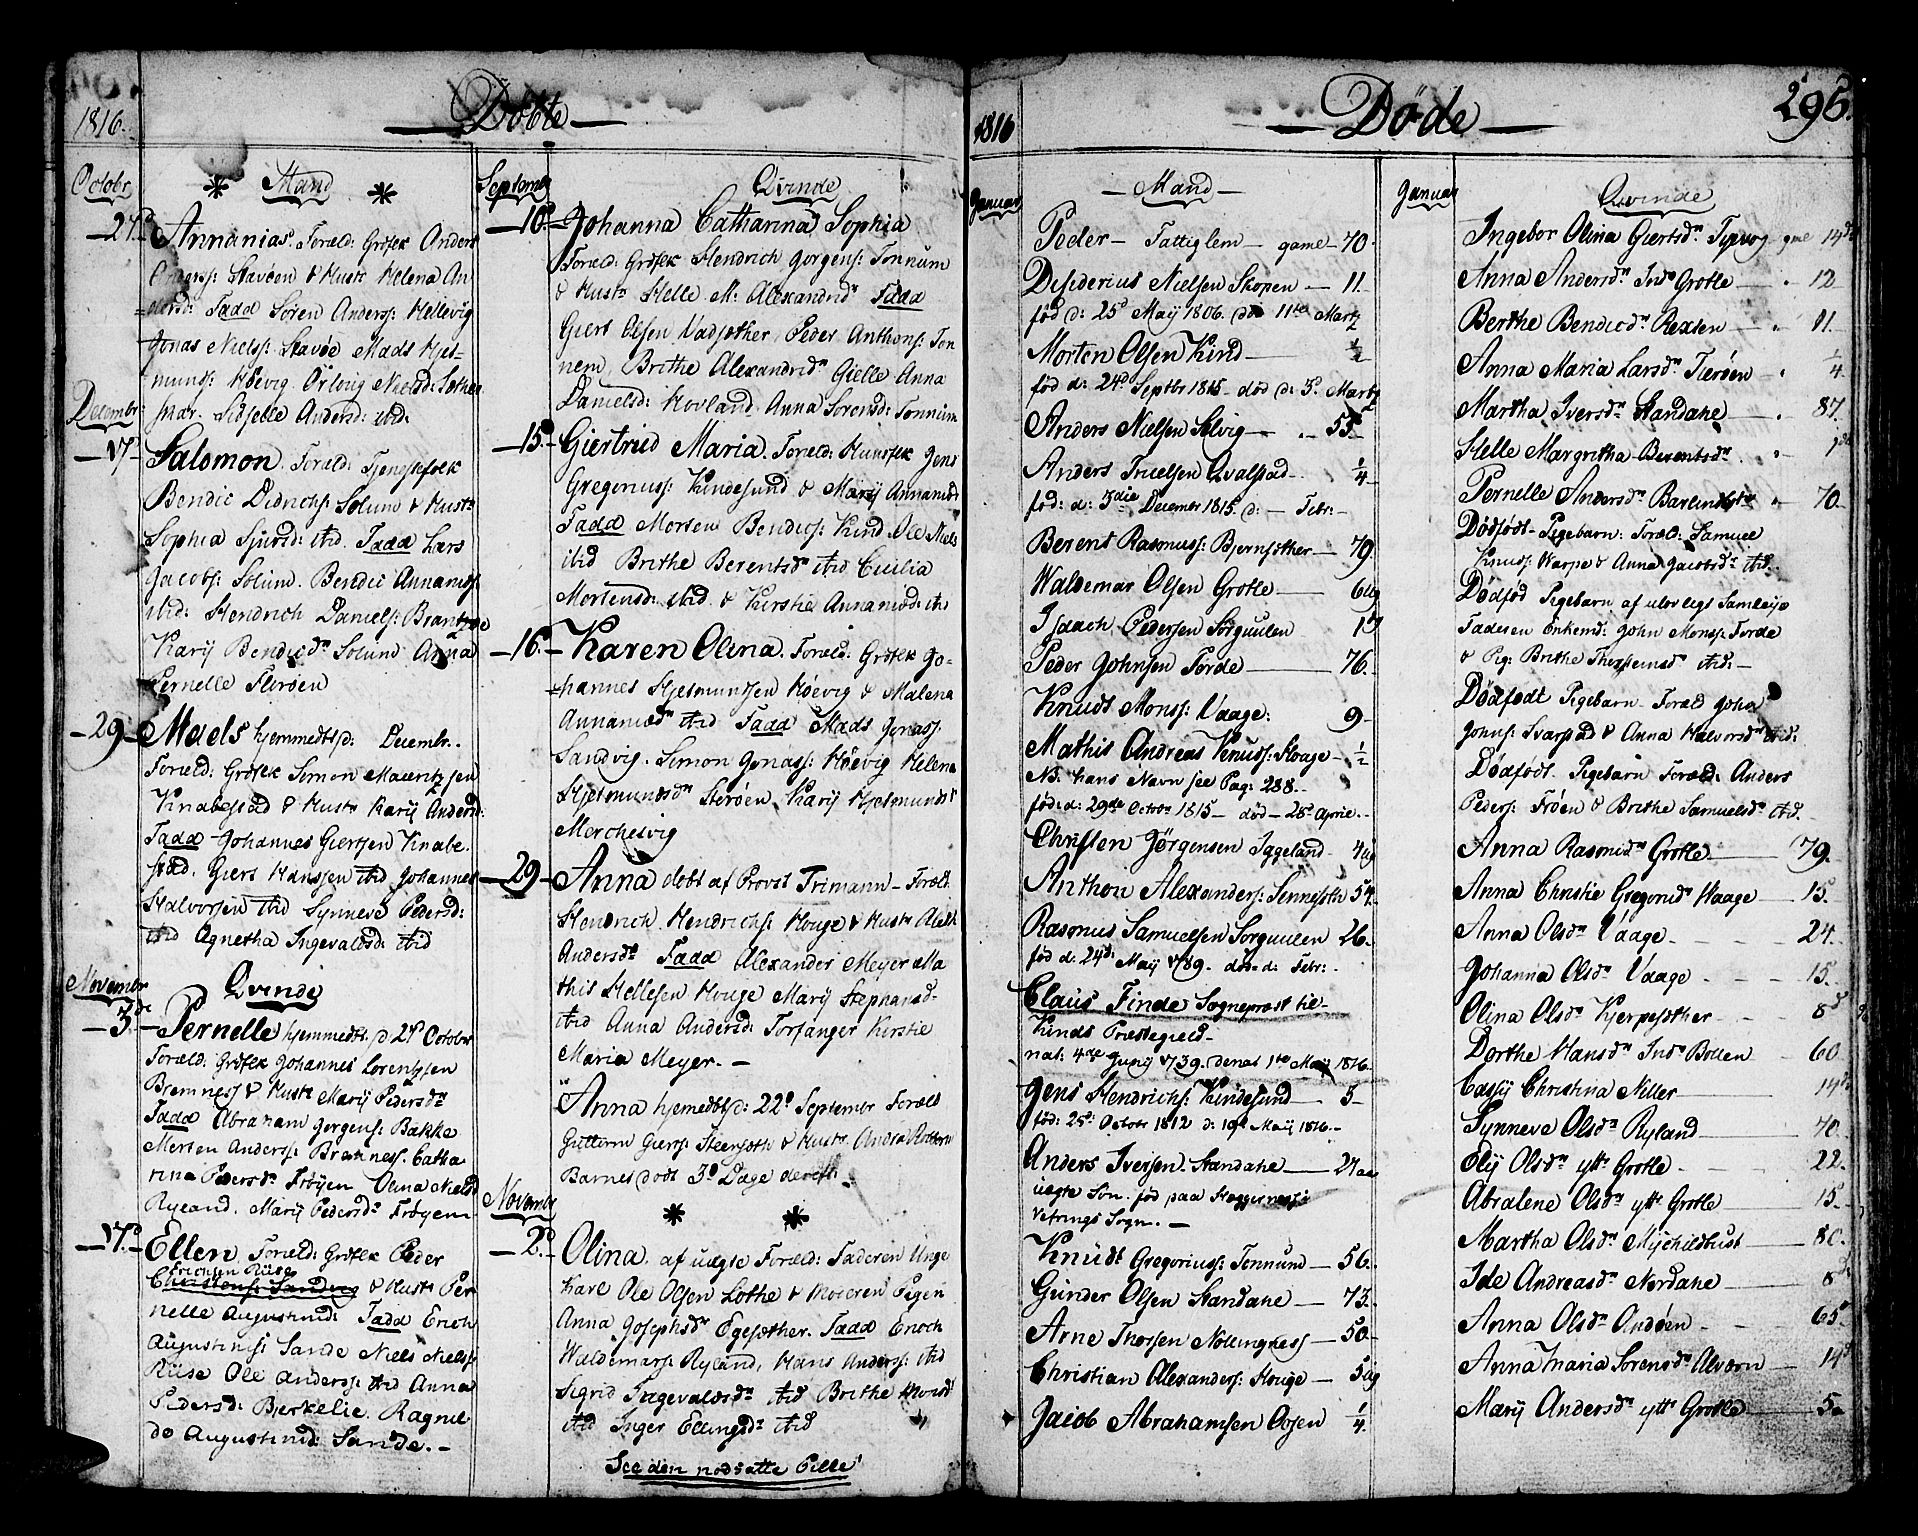 1816.
Döbte
Octobr
* Mand *
27d Annanias. Foræld: Grdfk Anders
Stavöen & Hustr Helena An-
dersd: Fadd Sören Anders: Hellevig
Jonas Niels: Stavöe Mads Hjel-
munds: Höevig
Sidselle Andersd: ibid:
Decembr:
17 Salomon. Foræld: Tjenestfolk
Bendic Didrichs: Solum & Hustr
Sophia Sjursd: ibid. Fadd Lars
Jacobs: Solund. Bendic Annanias:
ibid: Hendrich Daniels: Brantzøe
Karij Bendicdr Solund Anna
Pernelle Floröen
29 Mads hjemmedbt d: Decembr.
Foræld: Grdfk Simon Mauritzsen
Knabestad & Hustr Karij Andersd:
Fadd Johannes Giertsen Knabe-
stad. Giert Hanssen ibid Johannes
Halvorsen ibid Synneve Pedersd:
ibid Agnetha Ingevaldsd: ibid
Qvinde
Novembr
3die Pernelle hjemmedbt. d 27d Octobr
Foræld: Grdfk Johannes Lorentzsen
Bremness & Hustr Marij Pedersdr
Fadd Abraham Jörgens: Bakke
Morten Anders: Bremness. Catha
rina Pedersdr Fröÿen Olina Nielsd
Ryland. Marij Pedersdr Fröÿen
17d Ellen Foræld: Grdfk Peder
Erichsen Riise
Christens: Sandvig & Hustr Per
nelle Augustinsd: Fadd Erich
Augustins: Sande Niels Niels:
Riise Ole Anders: ibid Anna
Pedersd: Bjerkelie. Ragnil
de Augustinsd: Sande. -
Septembr
Qvinde
10 Johanna Catharina Sophia
Foræld: Grdfk Hendrich Jörgens: Tonnum
& Hustr Helle M: Alexandrsdr Fadd
Giert Olsen Vadsøther, Peder Anthons: Ton
nem, Brithe Alexandrsdr Gielle Anna
Danielsd: Hovland. Anna Sorensd: Tonnum
15 Giertrud Maria. Foræld: Huusfk Jens
Gregorius: Kindesund & Marij Annaniæd
Fadd Morten Bendics: Kind. Ole Niels
ibid Brithe Berentsdr ibid Cicilia
Mortensd: ibid. & Kirstie Annaniæd: ibid
16. Karen Olina. Foræld: Grdfk Jo-
hannes Hjelmundsen Höevig & Malena
Annaniædr ibid Fadd Mads Jonas:
Sandvig. Simon Jonas: Höevig Helena
Hjelmundsdr Storöen Karij Hjelmundsdr
Merchesvig
29 Anna döbt af Provst Frimann - Foræld.
Hendrich Hendrichs: Houge & Hustr
Andersdr Fadd Alexander Meyer Ma
this Hellesen Houge Marij Stephansd-
ibid Anna Andersd: Forfanger Kirstie
Maria Meyer. -
Anna hjemedbt d: 22d Septembr Foræld
Guttorm Gierts: Steensøth & Hustr
Barnet dødt 3d Dage dereft.
* *
Novembr
2d Olina. af uægte Foræld: Faderen Unge
Karl Ole Olsen Lothe & Moderen Pigen
Anna Josephsdr Egesæther. Fadd Enoch
Waldemars: Ryland, Hans Anders: ibid
Sigrid Ingevaldsdr ibid Brithe
ibid Inger Ellingsdr ibid
See den nedsatte Pille
1816
Döde
295.
Januar
- Mand -
Peder - Fattiglem - game - 70.
Desiderius Nielsen Skopen - 11.
fød d: 25d Maij 1806. død 11te Martz
Morten Olsen Kind - ½
fød d: 24d Septbr 1815 - död d: 5d Martz
Anders Nielsen Selvig - 55
Anders Truelsen Qvalstad. ¼
fød: d: 3die Decembr 1815. d: - Febr: -
Berent Rasmus: Bjernsöther - 79
Waldemar Olsen Grotle - 6ug
Isaach Pedersen Sörguulen
Peder Johnsen Førde - 76.
Knudt Mons: Vaage: 9
Mathis Andreas Knuds: Hoage - ½
NB. hans Navn see Pag: 288.
fød: d: 29de Octbr 1815 - död - 28de Aprie. -
Christen Jörgensen Iggeland 4ug
Anthon Alexanders: Sennesöth 54.
Rasmus Samuelsen Sorguulen 26.
fød d. 24d: Maij 1789. død d: Febr: -
Claus Finde Sogneprest til
Kinds Præstegield -
nat: 4de Junij 1739. denat 1te Maij 1816.
Jens Hendrichs: Kindesund - 3
fød: 25d: Octobr 1812 d: 19de Maij 1816. -
Anders Iversen. Standahe - 27
uægte Søn. fød paa
Vefrings Sogn. -
Knudt Gregorius: Tonnund - 56.
Gunder Olsen Standahe - 73.
Arne Thossen Nollingness - 50
Christian Alexanders: Houge - 5ug
Jacob Abrahamsen Oosen ¼
Januar
Qvinde
Ingebor Olina Giertsdr Typvog gml 14d:
Anna Andersdr Indr Grotle - 12
Berthe Bendicsdr Rexten - 11.
Anna Maria Larsdr Tieröen - ¼
Martha Iversdr Standahe - 87.
Helle Margritha Berentsdr
Pernelle Andersdr Barlindbotn 70.
Dödfødt Pigebarn: Foræld: Samuel
Knuds: Varpe & Anna Jacobsdr ibid.
Dödfød Pigebarn af ulovligt Samleje
Faderen Enkemd: John Mons: Førde
& Pig: Brithe ibid: -
Dödfødt Pigebarn. Foræld John
Johns: Svarstad & Anna Halvorsdr ibid:
Dödfødt. Pigebarn Foræld: Anders
Peders: Fröen & Brithe Samuelsdr ibid.
Anna Rasmusdr Grotle 79.
Anna Christie Gregoriidr Haage - 15
Anna Olsdr Vaage - - - 24.
Johanna Olsdr Vaage - - - 15.
Olina Olsdr Kjerpesöther - - 8d
Dorthe Hansdr Indr Botten - 60
Casij Christina Niller - 14d
Synneve Olsdr Ryland - 70.
Elij Olsdr ytt: Grotle - - 22.
Abralene Olsdr ytt: Grotle - 15.
Martha Olsdr Myckildbust - 80.
Ide Andreasdr Nordahe - 8d
Anna Olsdr Andöen - - 65
Anna Maria Sorensdr Alværn - 14d
Marij Andersdr ytt: Grotle - 5